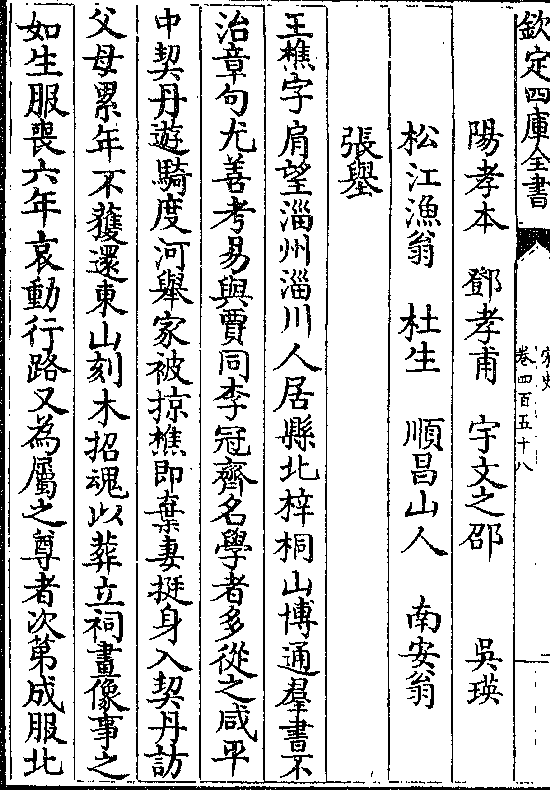 欽定四庫全書
宋史
卷四百五十八
陽孝本　鄧孝甫　宇文之邵　吳瑛
松江漁翁　杜生　順昌山人　南安翁
張壆
王樵字肩望淄州淄川人居縣北梓桐山博通羣書不
治章句尤善考易與賈同李冠齊名學者多從之咸平
中契丹遊騎度河舉家被掠樵即棄妻挺身入契丹訪
父母累年不獲還東山刻木招魂以葬立祠畫像事之
如生服喪六年哀動行路又為屬之尊者次第成服北